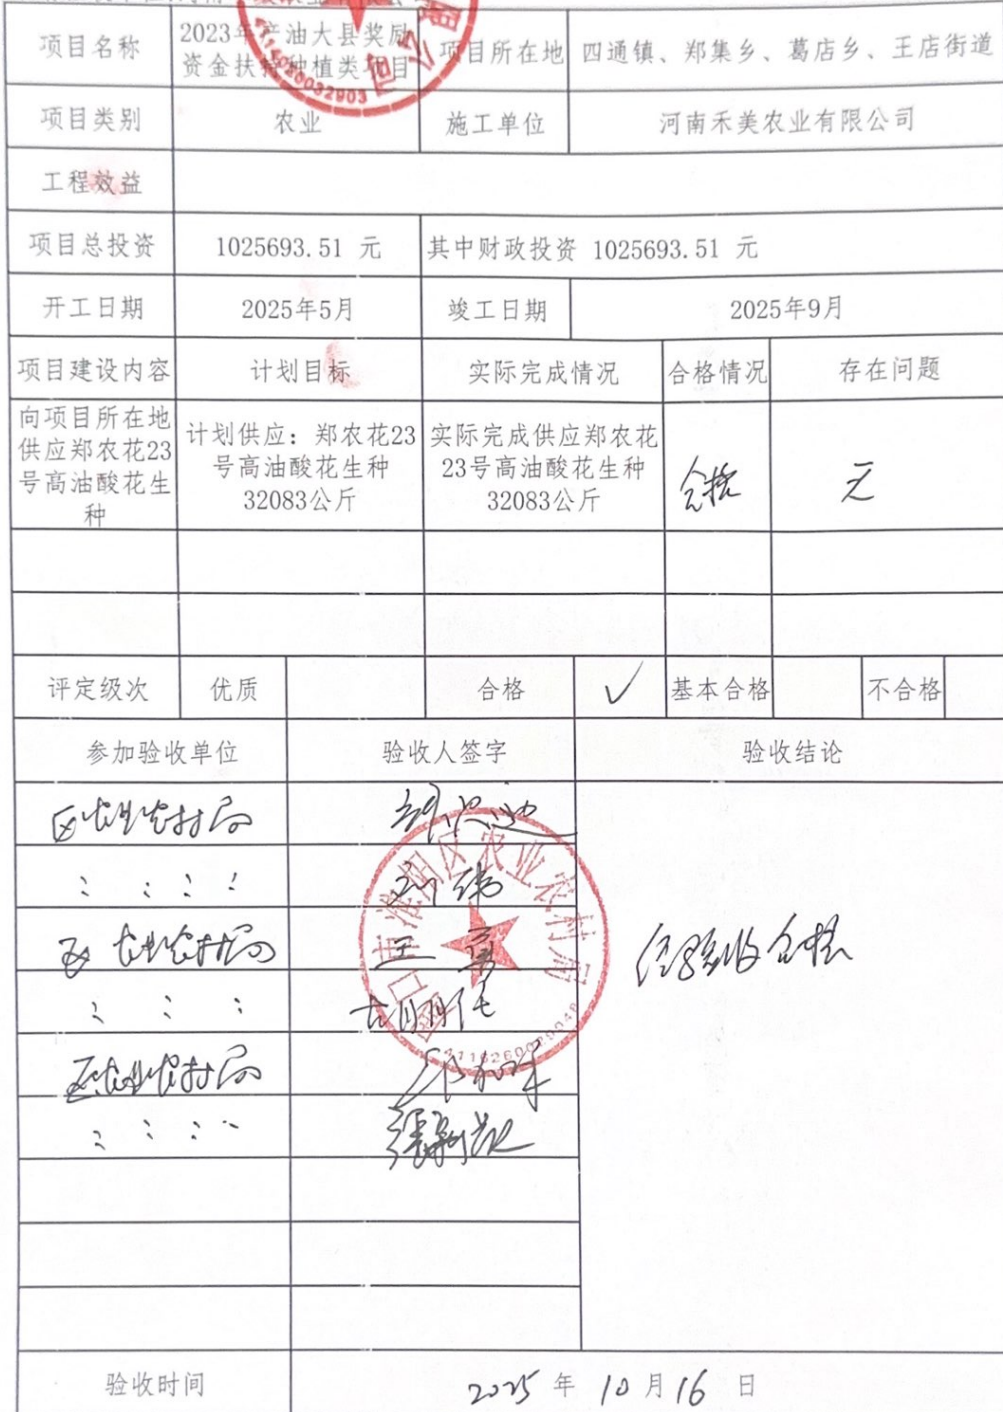 项目名称
2023年产油大县奖励
资金扶持种植类项目
项目所在地
四通镇、郑集乡、葛店乡、王店街道
项目类别
农业
施工单位
河南禾美农业有限公司
工程效益
项目总投资
1025693.51 元
其中财政投资 1025693.51 元
开工日期
2025年5月
竣工日期
2025年9月
项目建设内容
计划目标
实际完成情况
合格情况
存在问题
向项目所在地
供应郑农花23
号高油酸花生
种
计划供应：郑农花23
号高油酸花生种
32083公斤
实际完成供应郑农花
23号高油酸花生种
32083公斤
合格
无
评定级次
优质
合格
✓
基本合格
不合格
参加验收单位
验收人签字
验收结论
区农业农村局
区农业农村局
王勇
区农业农村局
经验收合格
周口市淮阳区农业农村局
验收时间
2025 年 10 月 16 日